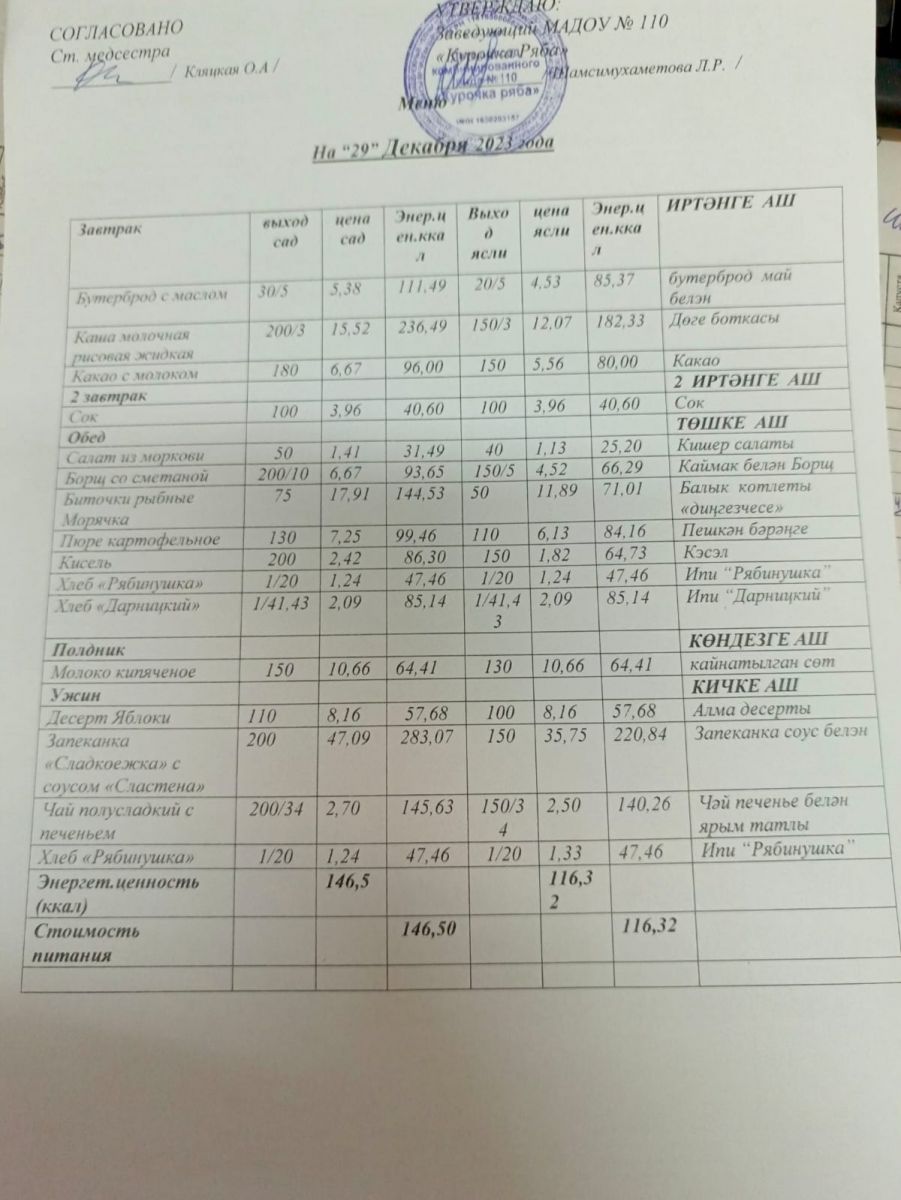 СОГЛАСОВАНО
Ст. медсестра
/ Кляцкая О.А /
УТВЕРЖДАЮ:
Заведующий МАДОУ № 110
«Курочка Ряба»
/ Шамсимухаметова Л.Р. /
комбинированного
вида № 110
«Курочка ряба»
Меню
На “29” Декабря 2023 года
Завтрак выход сад цена сад Энер.цен.ккал Выход ясли цена ясли Энер.цен.ккал ИРТӘНГЕ АШ
Бутерброд с маслом 30/5 5,38 111,49 20/5 4,53 85,37 бутерброд май белән
Каша молочная рисовая жидкая 200/3 15,52 236,49 150/3 12,07 182,33 Дөге боткасы
Какао с молоком 180 6,67 96,00 150 5,56 80,00 Какао
2 завтрак 2 ИРТӘНГЕ АШ
Сок 100 3,96 40,60 100 3,96 40,60 Сок
Обед ТӨШКЕ АШ
Салат из моркови 50 1,41 31,49 40 1,13 25,20 Кишер салаты
Борщ со сметаной 200/10 6,67 93,65 150/5 4,52 66,29 Каймак белән Борщ
Биточки рыбные Морячка 75 17,91 144,53 50 11,89 71,01 Балык котлеты «диңгезчесе»
Пюре картофельное 130 7,25 99,46 110 6,13 84,16 Пешкән бәрәңге
Кисель 200 2,42 86,30 150 1,82 64,73 Кэсэл
Хлеб «Рябинушка» 1/20 1,24 47,46 1/20 1,24 47,46 Ипи “Рябинушка”
Хлеб «Дарницкий» 1/41,43 2,09 85,14 1/41,43 2,09 85,14 Ипи “Дарницкий”
Полдник КӨНДЕЗГЕ АШ
Молоко кипяченое 150 10,66 64,41 130 10,66 64,41 кайнатылган сөт
Ужин КИЧКЕ АШ
Десерт Яблоки 110 8,16 57,68 100 8,16 57,68 Алма десерты
Запеканка «Сладкоежка» с соусом «Сластена» 200 47,09 283,07 150 35,75 220,84 Запеканка соус белән
Чай полусладкий с печеньем 200/34 2,70 145,63 150/34 2,50 140,26 Чәй печенье белән ярым татлы
Хлеб «Рябинушка» 1/20 1,24 47,46 1/20 1,33 47,46 Ипи “Рябинушка”
Энергет.ценность (ккал) 146,5 116,32
Стоимость питания 146,50 116,32